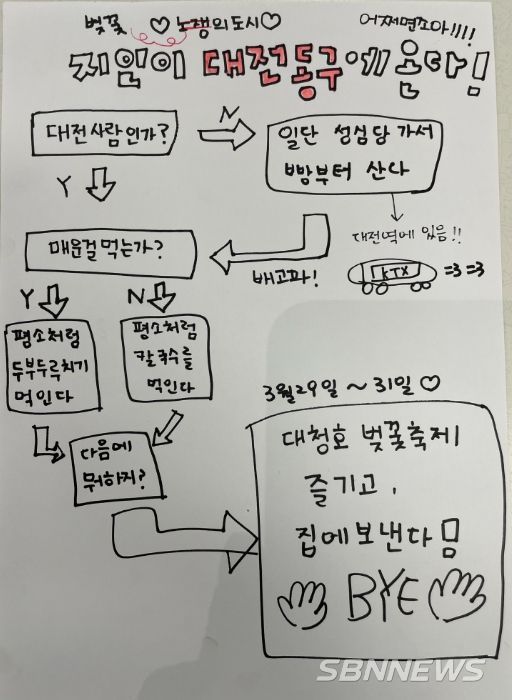 벚꽃
♡ 노잼의도시♡
어쩌면조아!!!!
지인이 대전동구에온다임
대전사람인가?
N
일단 성심당 가서
빵부터 산다
Y
대전역에 있음!!
KTX =3 =3
매운걸먹는가?
배고파!
Y
N
평소처럼
두부두루치기
먹인다
평소처럼
칼국수를
먹인다
다음에
뭐하지?
3월29일 ~ 31일♡
대청호 벚꽃축제
즐기고,
집에보낸다임
BYE
SBNNEWS